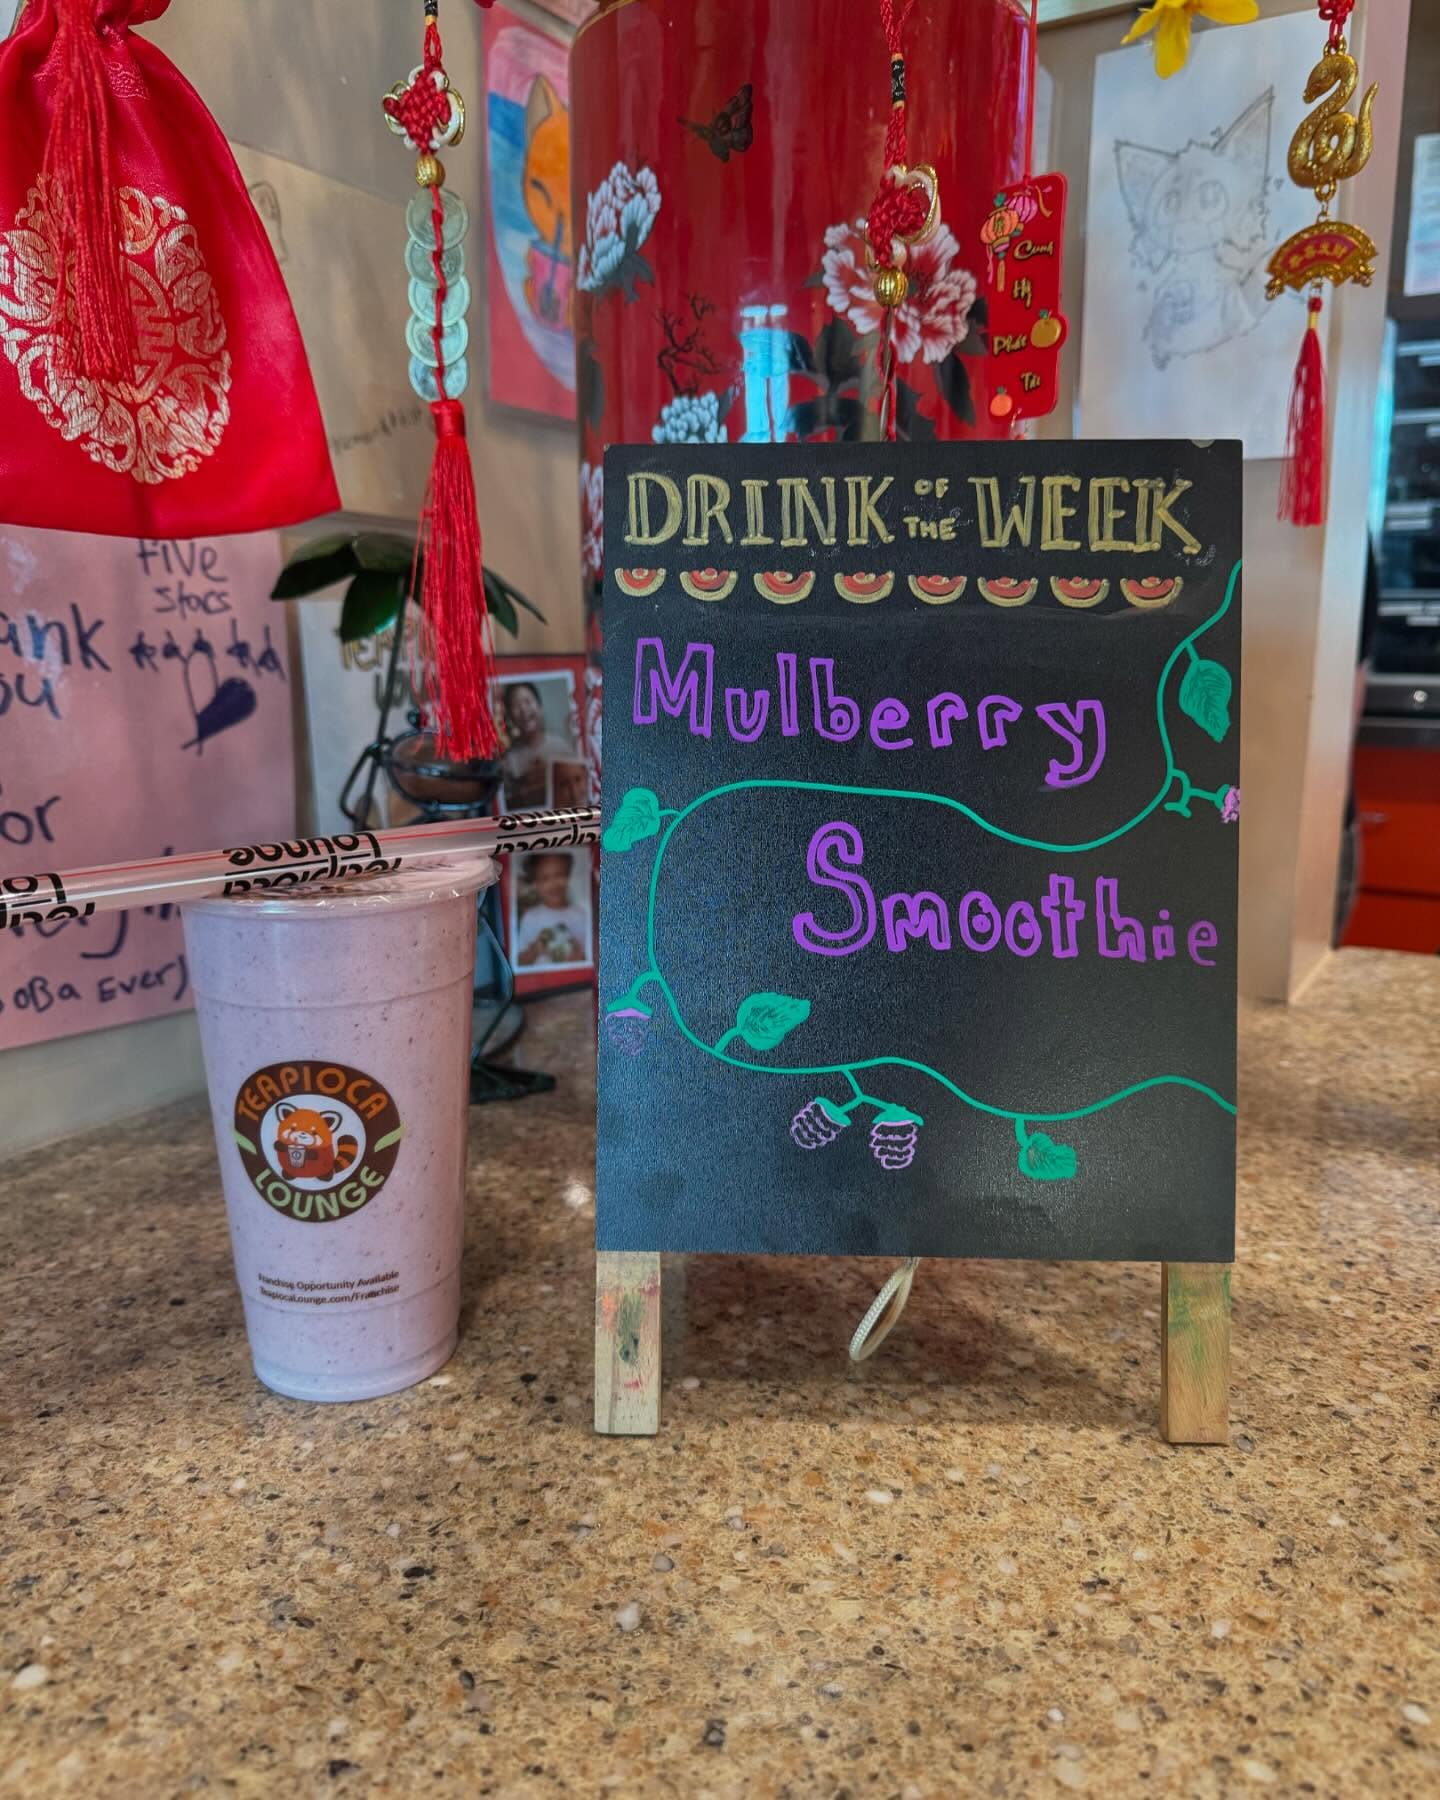 DRINK OF THE WEEK
Mulberry
Smoothie
TEAPIOCA
LOUNGE
Franchise Opportunity Available
TeapiocaLounge.com/Franchise
Teapioca
Lounge
Five
Stars
ank
ou
or
Boba Every
Cung
Hỷ
Phát
Tài